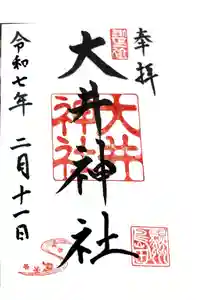 奉拝
大井神社
大井
神社
令和七年 二月十一日